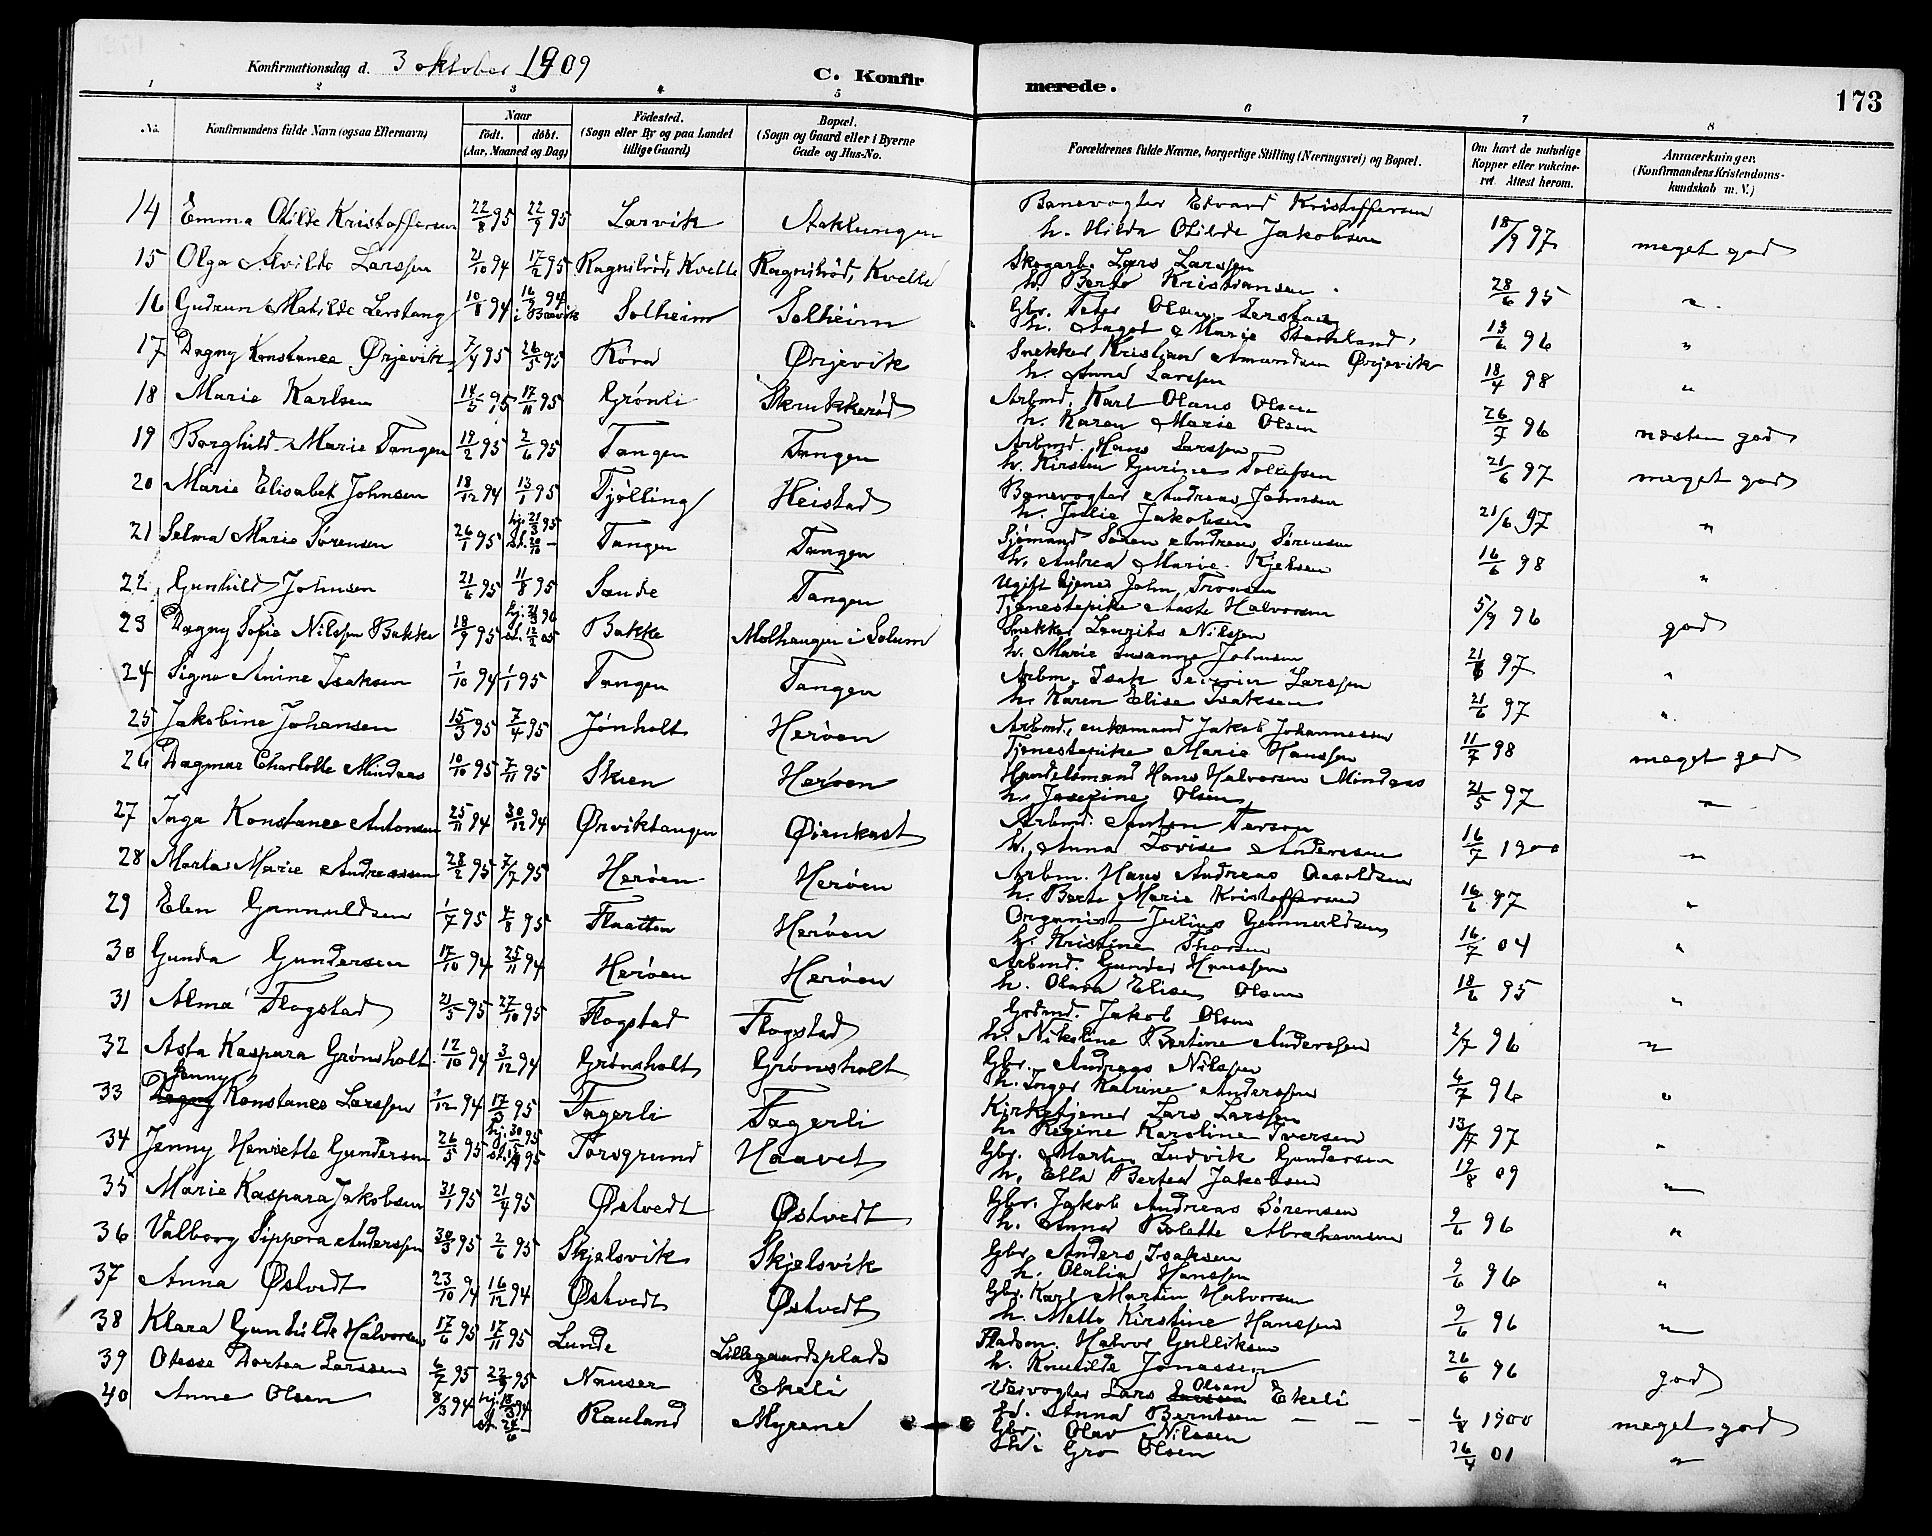 Konfirmationsdag d. 3 oktober 1909
C. Konfirmerede.
173
1 2 3 4 5 6 7 8
No.
Konfirmandens fulde Navn (ogsaa Efternavn)
Naar
født. døbt.
(Aar, Maaned og Dag)
Fødested.
(Sogn eller By og paa Landet
tillige Gaard)
Bopæl.
(Sogn og Gaard eller i Byerne
Gade og Hus-No.
Forældrenes fulde Navne, borgerlige Stilling (Næringsvei) og Bopæl.
Om havt de naturlige
Kopper eller vakcine-
ret. Attest herom.
Anmærkninger.
(Konfirmandens Kristendoms-
kundskab m. V.)
14 Emma Otilde Kristoffersen 22/8 95 22/9 95 Larvik Aaklungen Banevogter Edvard Kristoffersen
h. Hilda Otilde Jakobsen 18/9 97 meget god
15 Olga Alvilde Larssen 21/10 94 17/2 95 Ragnilrød, Kvelle Ragnilrød, Kvelle Skogarb. Lars Larssen
h. Berte Kristiansen 28/6 95 "
16 Gudrun Matilde Lerstang 10/8 94 16/9 94 Solheim Solheim Gbr. Peter Olsen Lerstang
h. Aagot Marie 13/6 96 "
17 Dagny Konstance Ørjevik 7/4 95 26/5 95 Ørjevik Snekker Kristian Amundsen Ørjevik
h. Anna Larssen 18/4 98 "
18 Marie Karlsen 17/11 95 Grønli Skrukkerød Arbmd. Karl Olaus Olsen
h. Karen Marie Olsen 26/7 96 næsten god
19 Borghild Marie Tangen 19/2 95 2/6 95 Tangen Tangen Arbmd. Hans Larssen
h. Kirsten Gurine Tollefsen 21/6 97 meget god
20 Marie Elisabet Johnsen 18/12 94 13/1 95 Tjølling Heistad Banevogter Andreas Johnsen
h. Julie Jakobsen 21/6 97 "
21 Selma Marie Sørensen 26/1 95 hj. 21/3 95 Tangen Tangen Sjømand Søren Andreas Sørensen
h. Andrea Marie 16/6 98 "
22 Gunhild Johnsen 21/6 95 11/8 95 Sande Tangen Ugift tjener John Tronsen
Tjenestepike Aaste Halvorsen 5/9 96 god
23 Dagny Sofie Nilssen Bakke 18/9 95 Bakke Molhaugen i Solum Snekker Laurits Nilssen
h. Marie Susanne Johnsen 21/6 97 "
24 Signe Anine Isaksen 1/10 94 1/1 95 Tangen Tangen Arbm. Isak Severin Larssen
h. Karen Elise Isaksen 21/6 97 "
25 Jakobine Johansen 15/3 95 7/4 95 Jønholt Herøen Arbmd., enkemand Jakob Johannessen
Tjenestepike Marie Hanssen 11/7 98 meget god
26 Dagmar Charlotte Mindaas 10/10 95 7/11 95 Skien Herøen Handelsmand Hans Halvorsen Mindaas
h. Josefine Olsen 21/5 97 "
27 Inga Konstance Antonsen 25/11 94 30/12 94 Ørviktangen Øienkast Arbmd. Anton Person
h. Anna Lovise Anderssen 16/7 1900 "
28 Marta Marie Andreassen 28/2 95 7/7 95 Herøen Herøen Arbm. Hans Andreas
h. Berte Marie Kristoffersen 16/6 97 "
29 Elen Gunnuldsen 1/7 95 4/8 95 Flaatten Herøen Organist Julius Gunnuldsen
h. Kristine Thorsen 16/7 04 "
30 Gunda Gundersen 17/10 94 25/11 94 Herøen Herøen Arbmd. Gunder Hanssen
h. Olava Elise Olsen 18/6 95 "
31 Alma Flogstad 21/5 95 27/10 95 Flogstad Flogstad Jakob Olsen
h. Nikoline Bertine Anderssen 2/7 96 "
32 Asta Kaspara Grønsholt 12/10 94 3/12 94 Grønsholt Grønsholt Gbr. Andreas Nilssen
h. Inger Katrine Anderssen 6/7 96 "
33 Jenny Dagny Konstance Larssen 1/12 94 17/3 95 Fagerli Fagerli Kirketjener Lars Larssen
h. Regine Karoline Iversen 13/7 97 "
34 Jenny Henriette Gundersen 26/5 95 Porsgrund Haavet Gbr. Martin Ludvik Gundersen
h. Ella Bertea Jakobsen 19/8 09 "
35 Marie Kaspara Jakobsen 31/1 95 21/4 95 Østvedt Østvedt Gbr. Jakob Andreas Sørensen
h. Anna Bolette Abrahamsen 9/6 96 "
36 Valborg Sippora Anderssen 30/3 95 2/6 95 Skjelsvik Skjelsvik Gbr. Anders Isaksen
h. Olalia Hanssen 9/6 96 "
37 Anna Østvedt 23/10 94 16/12 94 Østvedt Østvedt Gbr. Karl Martin Halvorsen
h. Mette Kirstine Hanssen 9/6 96 "
38 Klara Gunhilde Halvorsen 17/6 95 17/11 95 Lunde Lillegaardsplads Pladsm. Halvor Gulliksen
h. Knutilde Jonassen 26/6 96 god
39 Olesse Dortea Larssen 6/7 95 22/9 95 Nauser Ekeli Veivogter Lars Larsen Olsen Ekeli
h. Anna Berntsen — — — 6/8 1900 meget god
40 Anne Olsen 8/3 94 Rauland Myrene Gbr. Olav Nilssen
h. Gro Olsen 26/4 01 "